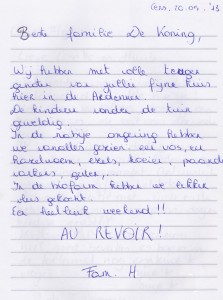 Gers, 20.05.'13
Beste familie De Koning,
Wij hebben met volle teugen
genoten van jullie fijne huis
hier in de Ardennen.
De kinderen vonden de tuin
geweldig.
In de nabije omgeving hebben
we van alles gezien: een vos, een
hazelworm, ezels, koeien, paarden
varkens, geiten,..
In de biofarm hebben we lekker
vlees gekocht.
Een heerlijk weekend!!
AU REVOIR!
Fam. H